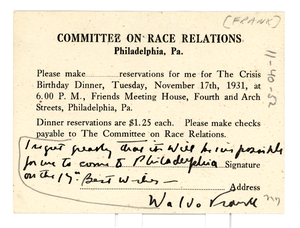 [FRANK]
11-40-52
COMMITTEE ON RACE RELATIONS
Philadelphia, Pa.
Please make reservations for me for The Crisis
Birthday Dinner, Tuesday, November 17th, 1931, at
6.00 P. M., Friends Meeting House, Fourth and Arch
Streets, Philadelphia, Pa.
Dinner reservations are $1.25 each. Please make checks
payable to The Committee on Race Relations.
I regret greatly that it will be impossible
for me to come to Philadelphia Signature
on the 17th. Best Wishes —
Address
Waldo Frank